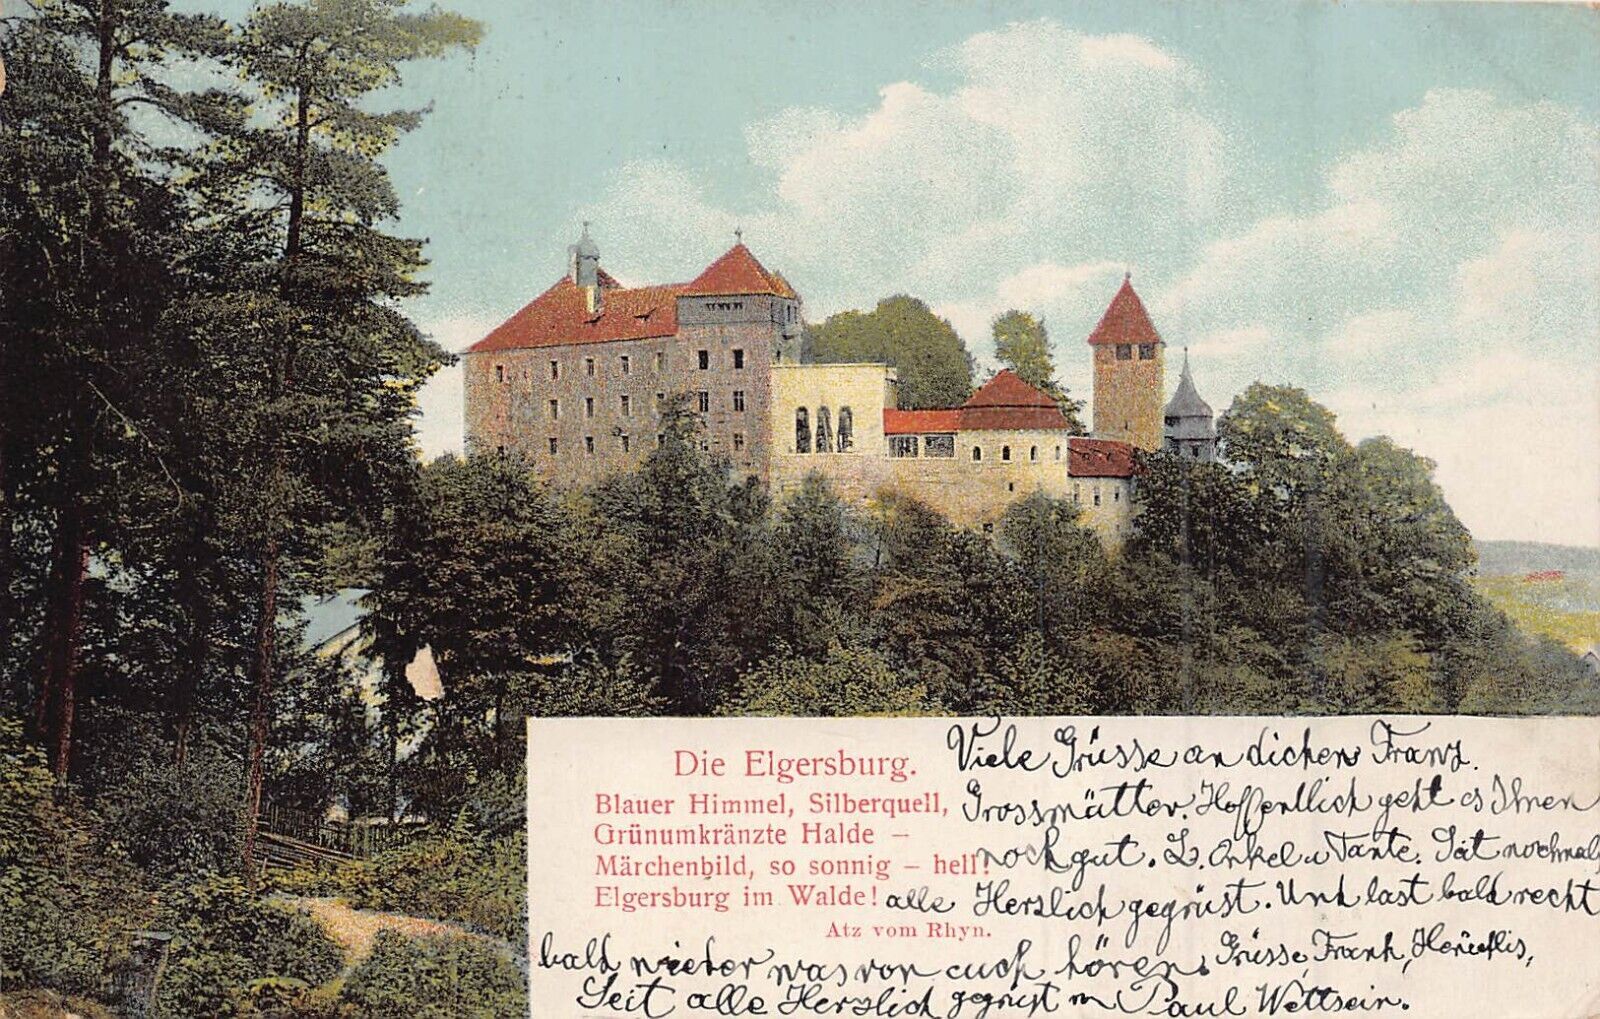 Die Elgersburg.
Blauer Himmel, Silberquell,
Grünumkränzte Halde –
Märchenbild, so sonnig – hell!
Elgersburg im Walde!
Atz vom Rhyn.
Viele Grüsse an dichen Franz.
Grossmütter. Hoffentlich geht es Ihnen
noch gut. L. Onkel u Tante. Seit nochmals
alle Herzlich gegrüst. Und last bald recht
bald wieder was von euch hören. Grüsse, Frank,
Seit alle Herzlich gegrüst Paul Wettsein.